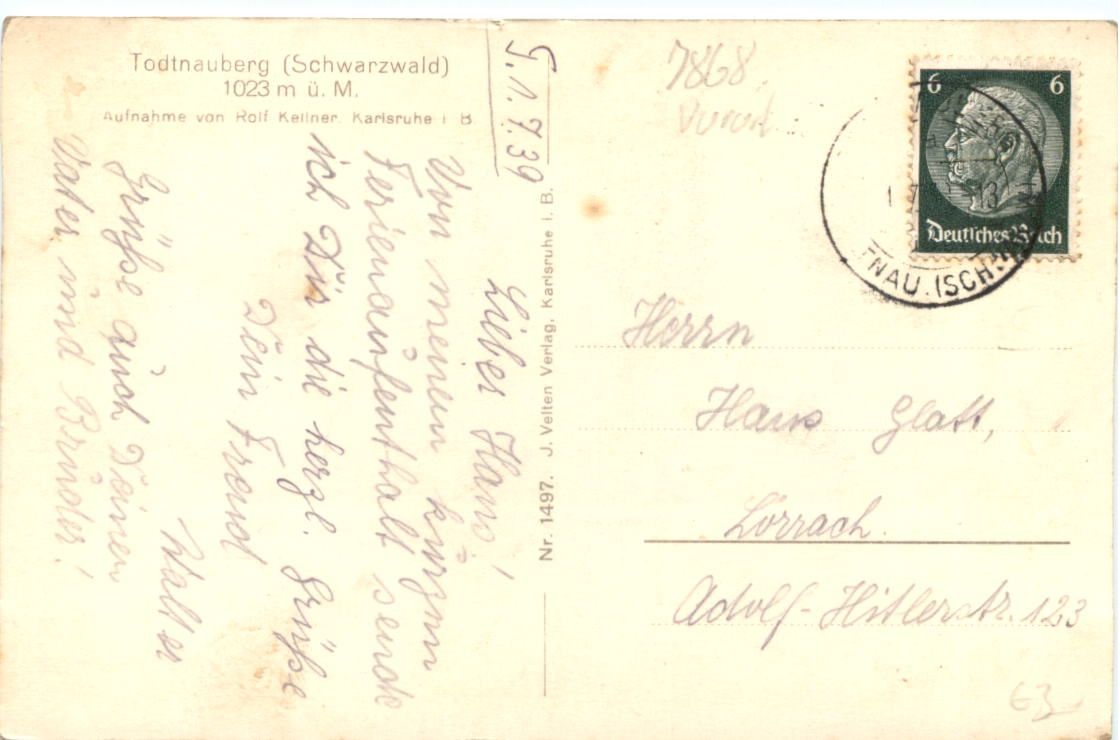 Todtnauberg (Schwarzwald)
1023 m ü. M.
Aufnahme von Rolf Kellner, Karlsruhe i. B.
G. 1.7.39
Lieber Hans!
Von meinem kurzen
Ferienaufenthalt sende
ich Dir die herzl. Grüße
Dein Freund
Walter
Grüße auch Deinen
Vater und Brüder!
Nr. 1497. J. Velten Verlag, Karlsruhe i. B.
7868
6 6
Deutsches Reich
TNAU (SCH
Herrn
Hans Glatt,
Lörrach.
Adolf-Hitlerstr. 123
63